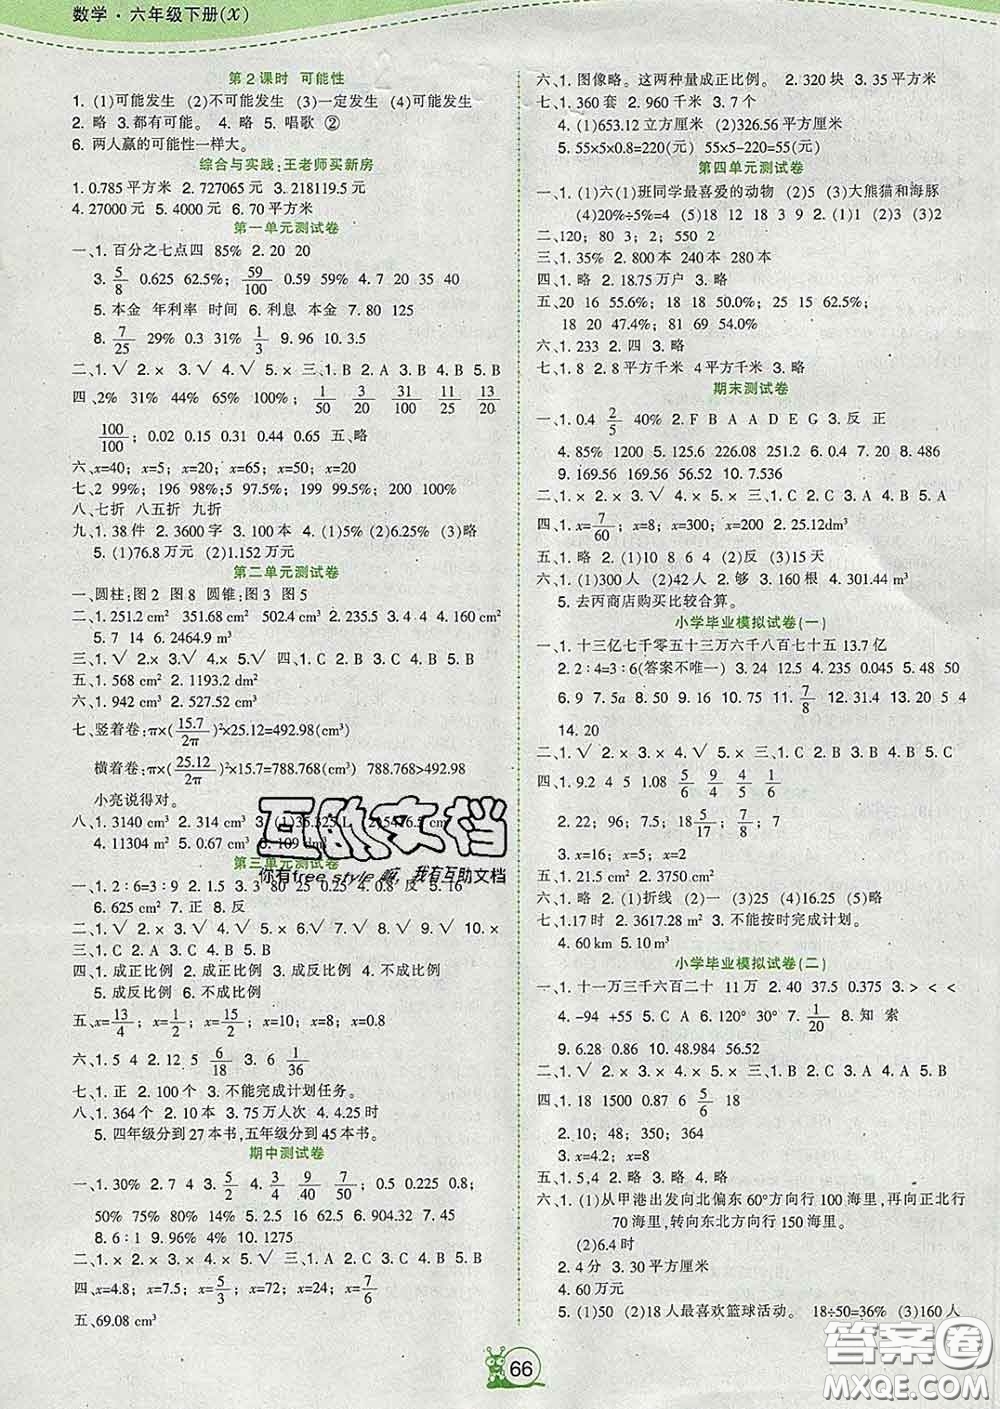 数学·六年级下册(X)
第2课时 可能性
1. (1)可能发生 (2)不可能发生 (3)一定发生 (4)可能发生
2. 略 3.都有可能。 4. 略 5. 唱歌 ②
6. 两人赢的可能性一样大。
综合与实践:王老师买新房
1. 0.785平方米 2. 727065元 3. 218119.5元
4. 27000元 5. 4000元 6. 70平方米
第一单元测试卷
一、1. 百分之七点四 85% 2. 20 20
3. 5/8 0.625 62.5%; 59/100 0.59 59%
5. 本金 年利率 时间 6. 利息 本金 7. 80 125
8. 7/25 29% 0.3 31% 1/3 9. 96 10. 3.5
二、1. √ 2. × 3. √ 4. √ 5. × 三、1. B 2. A 3. B 4. B 5. B
四、2% 31% 44% 65% 100%; 1/50 3/20 31/100 11/25
100/100; 0.02 0.15 0.31 0.44 0.65 五、略
六、x=40; x=5; x=20; x=65; x=50; x=20
七、2 99%; 196 98%;5 97.5%; 199 99.5%; 200 100%
八、七折 八五折 九折
九、1. 38件 2. 3600字 3. 100本 4. (1)5% (2)6.25% (3)略
5. (1)76.8万元 (2)1.152万元
第二单元测试卷
一、圆柱:图2 图8 圆锥:图3 图5
二、1. 251.2 cm² 351.68 cm² 502.4 cm³ 2. 350.5 3. 9 4. 1 9 2
5. 7 14 6. 2464.9 m³
三、1. √ 2. × 3. × 4. √ 5. √ 四、1. C 2. B 3. B 4. C 5. B
五、1. 568 cm² 2. 1193.2 dm²
六、1. 942 cm³ 2. 527.52 cm³
七、竖着卷:π×(15.7/2π)²×25.12=492.98(cm³)
横着卷:π×(25.12/2π)²×15.7=788.768(cm³) 788.768>492.98
小亮说得对。
八、1. 3140 cm² 2. 314 cm³
4. 11304 m² 5. 0.67 cm³
互助文档
你有free style嘛,我有互助文档
第三单元测试卷
一、1. 2:6=3:9 2. 15 3. 3 80 25 0.25 4. 0.8 反 5. 16
6. 625 cm² 7. 正 8. 反
二、1. √ 2. √ 3. × 4. √ 5. √ 6. × 7. √ 8. √ 9. √ 10. ×
三、1. C 2. A 3. C 4. B
四、1. 成正比例 2. 成正比例 3. 成反比例 4. 不成比例
5. 成反比例 6. 不成比例
五、x=13/4; x=1/2; x=15/2; x=10; x=8; x=0.8
六、1. 5 4 2. 12 5 6/18 3. 6 1/36
七、1. 正 2. 100个 3. 不能完成计划任务。
八、1. 364个 2. 10本 3. 75万人次 4. 4.25时
5. 四年级分到27本书,五年级分到45本书。
期中测试卷
一、1. 30% 2. 9 200 3. 5/2 4. 3/4 9/40 7/50 0.25 0.225 0.8;
50% 75% 80% 5. 2.5 16 62.5 6. 904.32 7. 45
8. 6:1 9. 96% 10. 1275
二、1. × 2. × 3. × 4. × 5. √ 三、1. B 2. A 3. C 4. B 5. B
四、x=4.8; x=7.5; x=5/3; x=72; x=24; x=7/6
五、69.08 cm³
六、1. 图像略。这两种量成正比例。 2. 320块 3. 35平方米
七、1. 360套 2. 960千米 3. 7个
4. (1)653.12立方厘米 (2)326.56平方厘米
5. 55×5×0.8=220(元) 55×5-220=55(元)
第四单元测试卷
一、1. (1)六(1)班同学最喜爱的动物 (2)5 (3)大熊猫和海豚
(4)20%÷5%=4 (5)18 12 18 3 9 2. (1)3 (3)2
二、120; 80 3; 2; 550 2
三、1. 35% 2. 800本 240本 280本
四、1. 略 2. 18.75万户 3. 略
五、20 16 55.6%; 18 18 50.0%; 25 15 62.5%;
18 20 47.4%; 81 69 54.0%
六、1. 233 2. 四 3. 略
七、1. 8 2. 8平方千米 4平方千米 3. 略
期末测试卷
一、1. 0.4 2/5 40% 2. F B A A D E G 3. 反 正
4. 85% 1200 5. 226.08 251.2 6. 20 7. 21 8. 486
9. 169.56 169.56 56.52 10. 7.536
二、1. × 2. × 3. √ 4. × 5. × 三、1. C 2. C 3. B 4. B 5. A
四、1. x=7/60; x=8; x=300; x=2 2. 25.12dm³
五、1. 略 2. (1)10 8 6 4 (2)反 (3)15天
六、1. (1)300人 (2)42人 2. 够 3. 160根 4. 301.44 m³
5. 去丙商店购买比较合算。
小学毕业模拟试卷(一)
一、1. 十三亿七千零五十三万六千八百七十五 13.7亿
2. 2:4=3:6(答案不唯一) 3. 24 12.5 4. 235 0.045 5. 48 50
6. 9 7. 5a 8. 50 9. 16 10. 75 11. 7/8 12. 31.4 13. 20 5 4
14. 20
二、1. √ 2. × 3. × 4. √ 5. × 三、1. C 2. B 3. B 4. C 5. B
四、1. 9.2 4 5 1.08 5/6 9/4 4/5 1/6
2. 22; 96; 34; 18 5/17; 7/8; 7
3. x=16; x=5; x=2
五、1. 21.5 cm² 2. 3750 cm²
六、1. 略 2. (1)折线 (2)一 (3)25 (4)16 (5)略
七、1. 17时 2. 3617.28 m² 3. 不能按时完成计划。
4. 60 km 5. 10 m³
小学毕业模拟试卷(二)
一、1. 十一万三千六百二十 11万 2. 40 37.5 0.375 3. > < <
4. -94 +55 5. C A 6. 120° 30° 7. 1/20 8. 知 索
9. 6.28 0.86 10. 48.984 56.52
二、1. √ 2. × 3. × 4. × 5. × 三、1. D 2. C 3. B 4. A 5. C
四、1. 18 1500 0.87 6 5/6 18
2. 10; 48; 350; 4
3. x=4.2; x=8
五、1. 5,4 2. 略 3. 略 4. 略
六、1. (1)从甲港出发向北偏东60°方向行100海里,再向正北行
70海里,转向东北方向行150海里。
(2)6.4时
2. 4分 3. 30平方厘米
4. 60万元
5. (1)50 (2)18人最喜欢篮球活动。 18÷50=36% (3)160人
66
答案圈
MXQE.COM